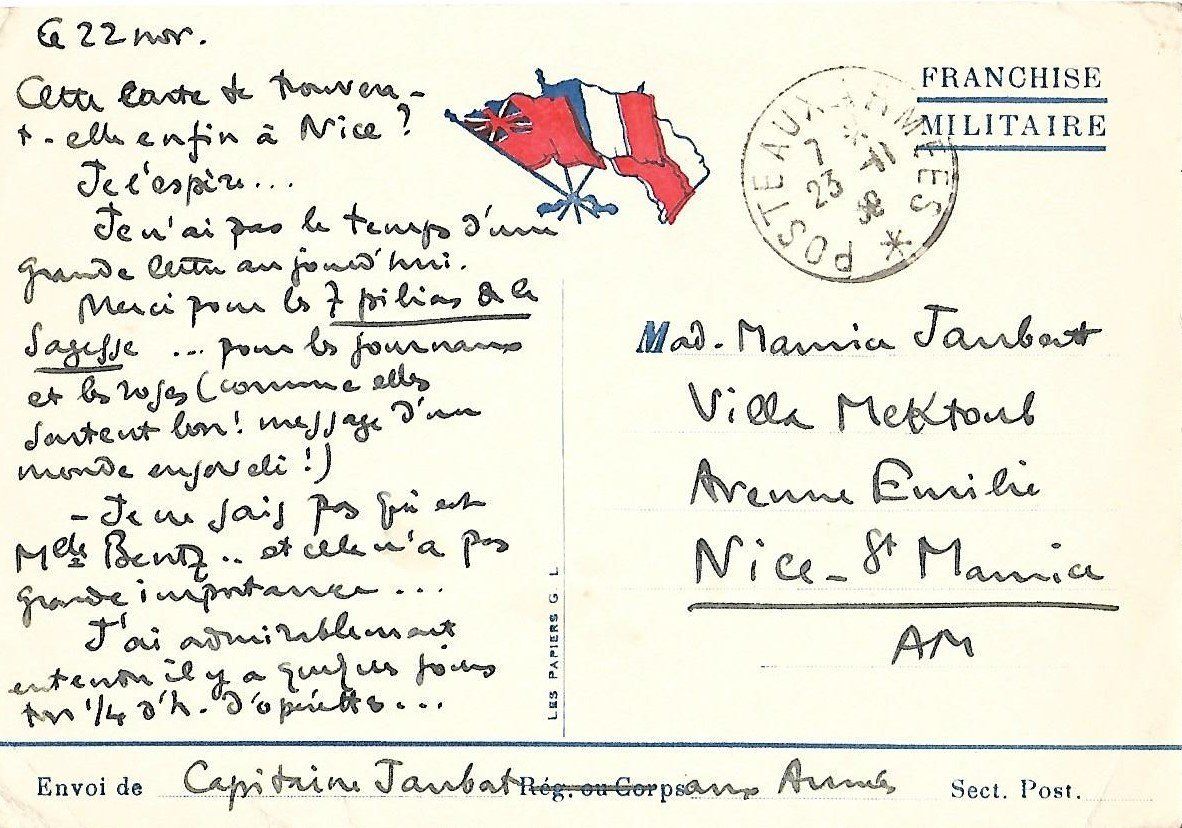 Le 22 nov.
Cette carte te trouvera-
t-elle enfin à Nice ?
Je l'espère...
Je n'ai pas le temps d'une
grande lettre aujourd'hui.
Merci pour les 7 piliers de la
Sagesse ... pour les journaux
et les roses (comme elles
sentent bon ! message d'un
monde enseveli !)
- Je ne sais pas qui est
Melle Bentz .. et cela n'a pas
grande importance ...
J'ai admirablement
entendu il y a quelques jours
1/4 d'h. d'opérette ...
FRANCHISE
MILITAIRE
POSTE AUX ARMEES
7
23 11
Mad. Maurice Jaubert
Villa Mektoub
Avenue Emilie
Nice - St Maurice
AM
LES PAPIERS G. L.
Envoi de Capitaine Jaubert Rég. ou Corps aux Armées Sect. Post.